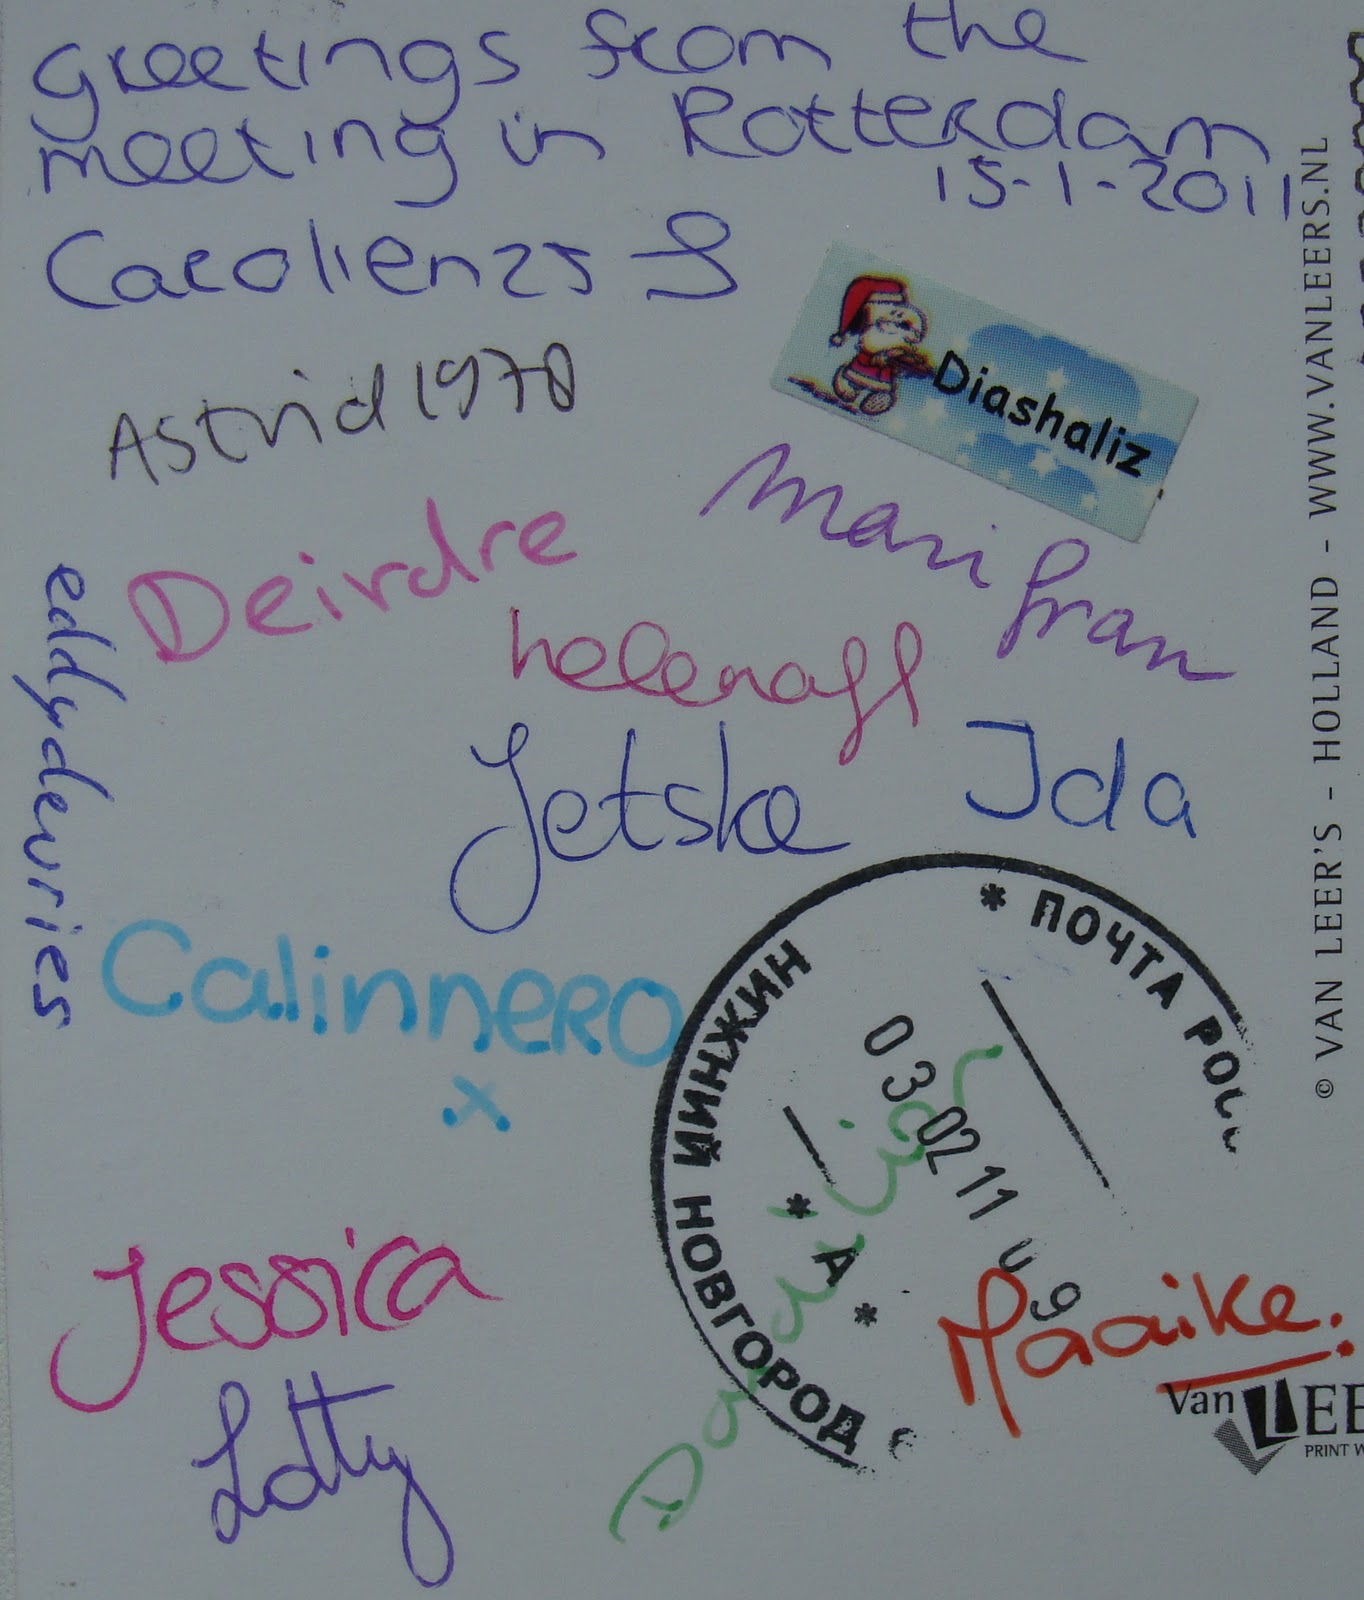 greetings from the
meeting in Rotterdam
15-1-2011
Carolien25
Diashaliz
Astrid1970
marifran
Deirdre
helenaff
eddydevries
Jetske
Ida
Calinnero
x
* ПОЧТА РОС
НИЖНИЙ НОВГОРОД
03 02 11 09
* А *
Jessica
Maaike.
Lotty
© VAN LEER'S - HOLLAND - WWW.VANLEERS.NL
Van LEE
PRINT W